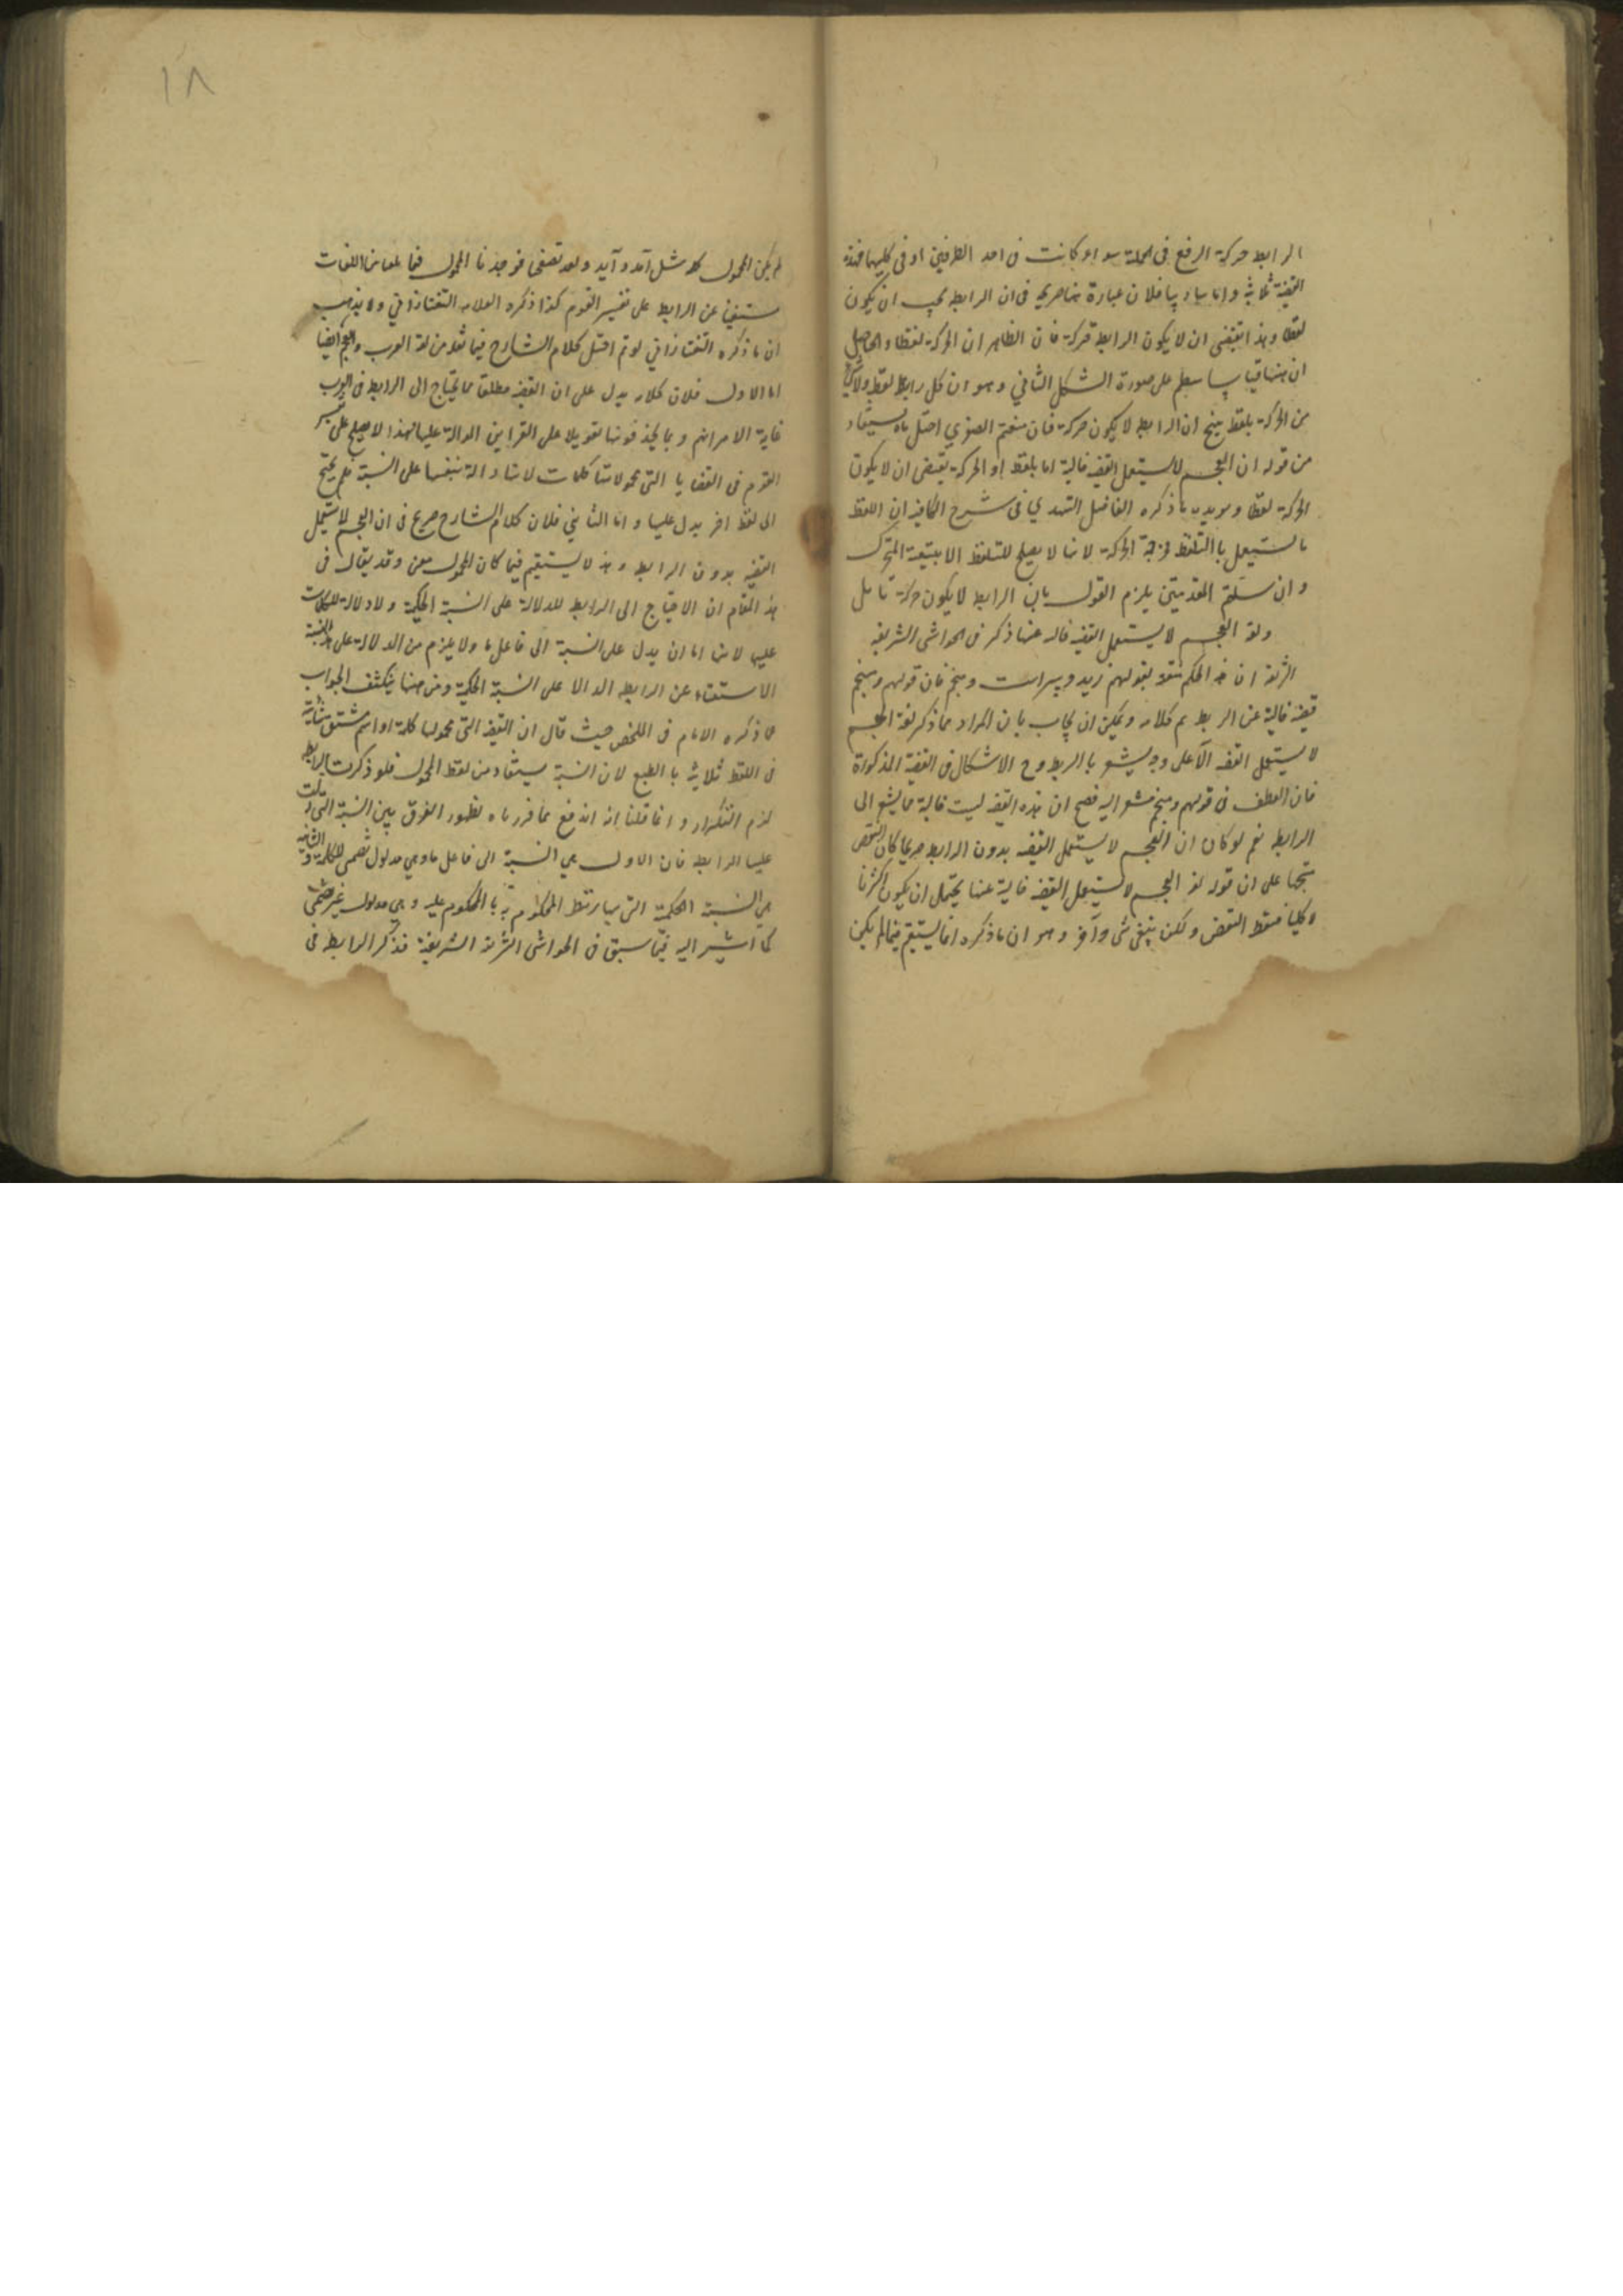 الرابط حركة الرفع فى الجملة سواء كانت فى احد الطرفين او فى كليهما فهذه
القضية ثلاثية واما ساد يا فلان عبارة ههنا صريح فى ان الرابط يجب ان يكون
لفظا وهذا يقتضى ان لا يكون الرابط حركة فان الظاهر ان الحركة لفظا والحاصل
ان ههنا قياسا يعلم على صورة الشكل الثانى وهو ان كل رابط لفظ ولا شئ
من الحركة بلفظ ينتج ان الرابط لا يكون حركة فان منعتم الصغرى اختل ما يستفاد
من قوله ان العجم لا يستعمل القضية خالية اما بلفظ او الحركة يقتضى ان لا يكون
الحركة لفظا ويؤيده ما ذكره الفاضل الهندى فى شرح الكافية ان اللفظ
ما يستعمل بالتلفظ فخرجة الحركة لانها لا يصلح للتلفظ الا بتبعية المتحرك
وان سلمتم المقدمتين يلزم القول بان الرابط لا يكون حركة تامل
ولغة العجم لا يستعمل القضية خالية عنها ذكر فى الحواشى الشريفة
الشريفة ان هذا الحكم منقوض بقولهم زيد دبيراست ومنجم فان قولهم ومنجم
قضية خالية عن الربط تم كلامه ويمكن ان يجاب بان المراد مما ذكر لغة العجم
لا يستعمل القضية الا على وجه يشعر بالربط وح الاشكال فى القضية المذكورة
فان العطف فى قولهم ومنجم مشعر اليه فصح ان هذه القضية ليست خالية مما يشعر الى
الرابط نعم لو كان ان العجم لا يستعمل القضية بدون الرابط صريحا كان النقض
متجها على ان قوله لغة العجم لا يستعمل القضية خالية عنها يحتمل ان يكون اكثريا
لا كليا فسقط النقض ولكن ينبغى شئ وآخر وهو ان ما ذكره انما يستقيم فيما لم يكن
لم يكن المحمول كلمة مثل آمد وآيد وبعد تصفحى فوجدنا المحمول فيما بلغنا من اللغات
مستغنيا عن الرابط على تفسير القوم كذا ذكره العلامة التفتازانى ولا يذهب
ان ما ذكره التفتازانى لو تم اختل كلام الشارح فيما نقله من لغة العرب والعجم ايضا
اما الاول فلان كلامه يدل على ان القضية مطلقا مما يحتاج الى الرابط فى العرب
غاية الامر انهم ربما يحذفونها تعويلا على القراين الدالة عليها فهذا لا يصلح على تفسير
القوم فى القضايا التى محمولاتها كلمات لانها دالة بنفسها على النسبة فلم يحتج
الى لفظ آخر يدل عليها واما الثانى فلان كلام الشارح صريح فى ان العجم لا يستعمل
القضية بدون الرابط وهذا لا يستقيم فيما كان المحمول معنى وقد يقال فى
هذا المقام ان الاحتياج الى الرابط للدلالة على النسبة الحكمية ولا دلالة للكلمات
عليها لانها اما ان يدل على النسبة الى فاعل ما ولا يلزم من الدلالة على هذه النسبة
الاستغناء عن الرابط الدالة على النسبة الحكمية ومن ههنا ينكشف الجواب
عما ذكره الامام فى الملخص حيث قال ان القضية التى محمولها كلمة او اسم مشتق ثنائية
فى اللفظ ثلاثية بالطبع لان النسبة يستفاد من لفظ المحمول فلو ذكرت الرابط
لزم التكرار وانما قلنا انه اندفع بما قررناه لظهور الفرق بين النسبة التى دلت
عليها الرابط فان الاول هى النسبة الى فاعل ما وهى مدلول تضمنى للكلمة والثانية
هى النسبة الحكمية التى بها ارتبط المحكوم به بالمحكوم عليه وهى مدلول غير تضمنى
كما اشير اليه فيما سبق فى الحواشى الشريفة الشريفة فذكر الرابط فى
١٨